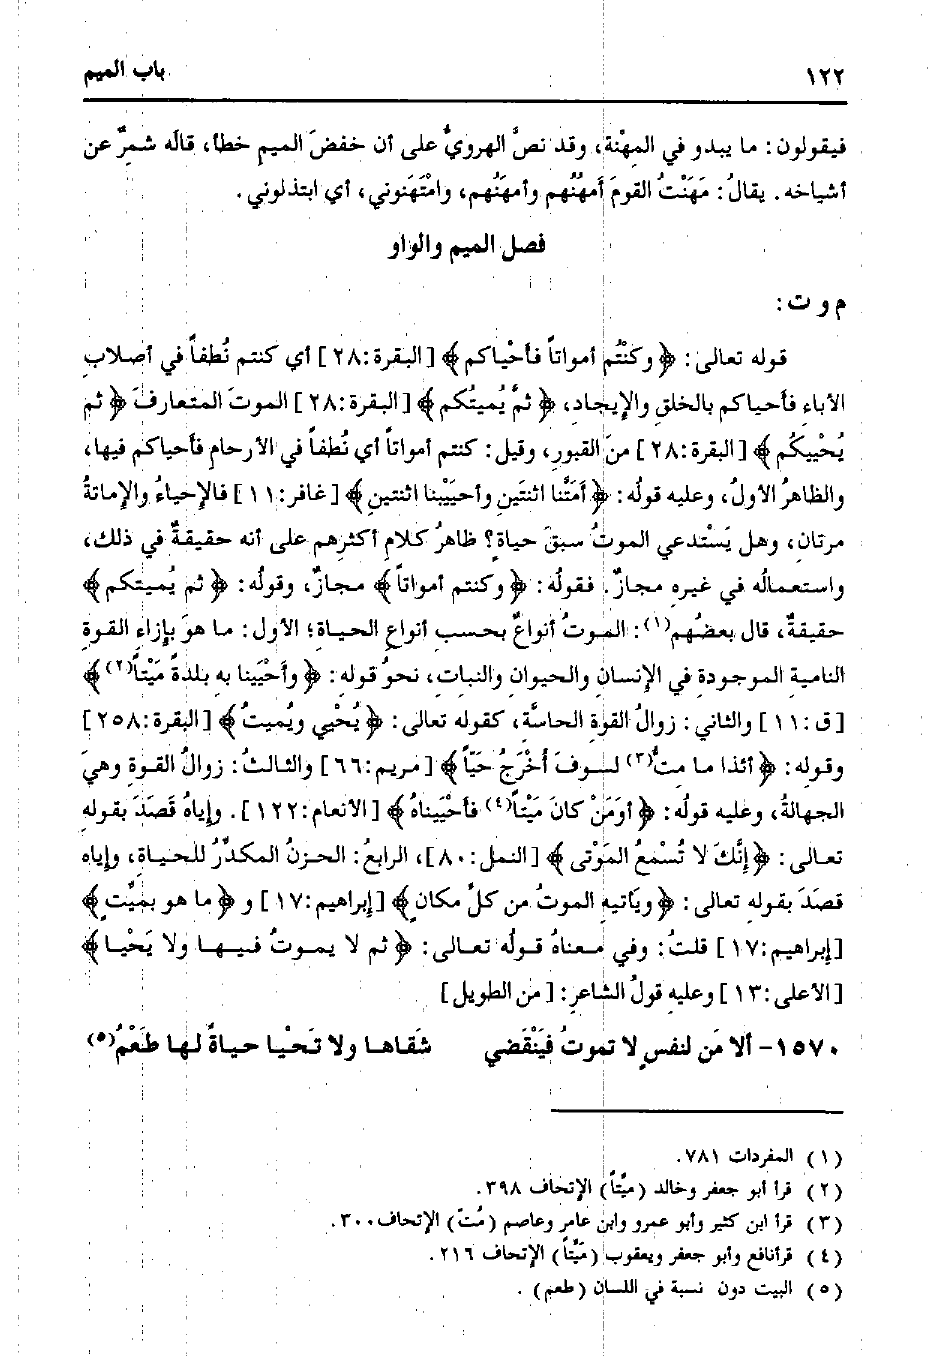 ١٢٢ باب الميم
فيقولون: ما يبدو في المِهْنة، وقد نصَّ الهرويُّ على أن خفضَ الميم خطأ، قالَه شمرٌ عن
أشياخه. يقالُ: مَهَنْتُ القومَ أَمهُنُهم وأمهَنُهم، وامْتَهَنوني، أي ابتذلوني.
فصل الميم والواو
م و ت:
قوله تعالى: ﴿وكنْتُم أمواتاً فأحْياكم﴾ [البقرة:٢٨] أي كنتم نُطفاً في أصلابِ
الآباء فأحياكم بالخلقِ والإيجاد، ﴿ثمَّ يُميتُكم﴾ [البقرة:٢٨] الموتَ المتعارفَ ﴿ثم
يُحْييكُم﴾ [البقرة:٢٨] منَ القبورِ، وقيل: كنتم أمواتاً أي نُطفاً في الأرحام فأحياكم فيها،
والظاهرُ الأولُ، وعليه قولُه: ﴿أَمَتَّنا اثنتَينِ وأحيَيْبنا اثنتينِ﴾ [غافر:١١] فالإحياءُ والإماتةُ
مرتان، وهل يَسْتدعي الموتُ سبقَ حياة؟ ظاهرُ كلامِ أكثرِهم على أنه حقيقةٌ في ذلك،
واستعمالُه في غيره مجازٌ. فقولُه: ﴿وكنتم أمواتاً﴾ مجازٌ، وقولُه: ﴿ثم يُميتكم﴾
حقيقةٌ، قال بعضُهم(١): الموتُ أنواعٌ بحسب أنواعِ الحياة؛ الأول: ما هوَ بإزاءِ القوة
النامية الموجودة في الإنسان والحيوان والنبات، نحوُ قوله: ﴿وأحْيَينا به بلدةً مَيْتاً(٢)﴾
[ق:١١] والثاني: زوالُ القوة الحاسَّة، كقوله تعالى: ﴿يُحْيي ويُميتُ﴾ [البقرة:٢٥٨]
وقوله: ﴿أئذا ما متُّ(٣) لسوفَ أُخْرَجُ حَيّاً﴾ [مريم:٦٦] والثالثُ: زوالُ القوة وهيَ
الجهالةُ، وعليه قولُه: ﴿أوَمَنْ كانَ مَيْتاً(٤) فأحْيَيناهُ﴾ [الأنعام:١٢٢]. وإياهُ قَصَدَ بقوله
تعالى: ﴿إنَّكَ لا تُسْمعُ المَوْتى﴾ [النمل:٨٠]، الرابعُ: الحزنُ المكدِّرُ للحياة، وإياه
قصَدَ بقوله تعالى: ﴿ويَأتيهِ الموتُ من كلِّ مكانٍ﴾ [إبراهيم:١٧] و ﴿ما هو بميِّتٍ﴾
[إبراهيم:١٧] قلتُ: وفي معناهُ قولُه تعالى: ﴿ثم لا يموتُ فيها ولا يَحْيا﴾
[الأعلى:١٣] وعليه قولُ الشاعرِ: [من الطويل]
١٥٧٠- ألا مَن لنفسٍ لا تموتُ فيَنْقَضي شَقاها ولا تَحْيا حياةً لها طَعْمُ(٥)
(١) المفردات ٧٨١.
(٢) قرأ أبو جعفر وخالد (ميِّتاً) الإتحاف ٣٩٨.
(٣) قرأ ابن كثير وأبو عمرو وابن عامر وعاصم (مُتّ) الإتحاف٣٠٠.
(٤) قرأنافع وأبو جعفر ويعقوب (مَيِّتاً) الإتحاف ٢١٦.
(٥) البيت دون نسبة في اللسان (طعم).